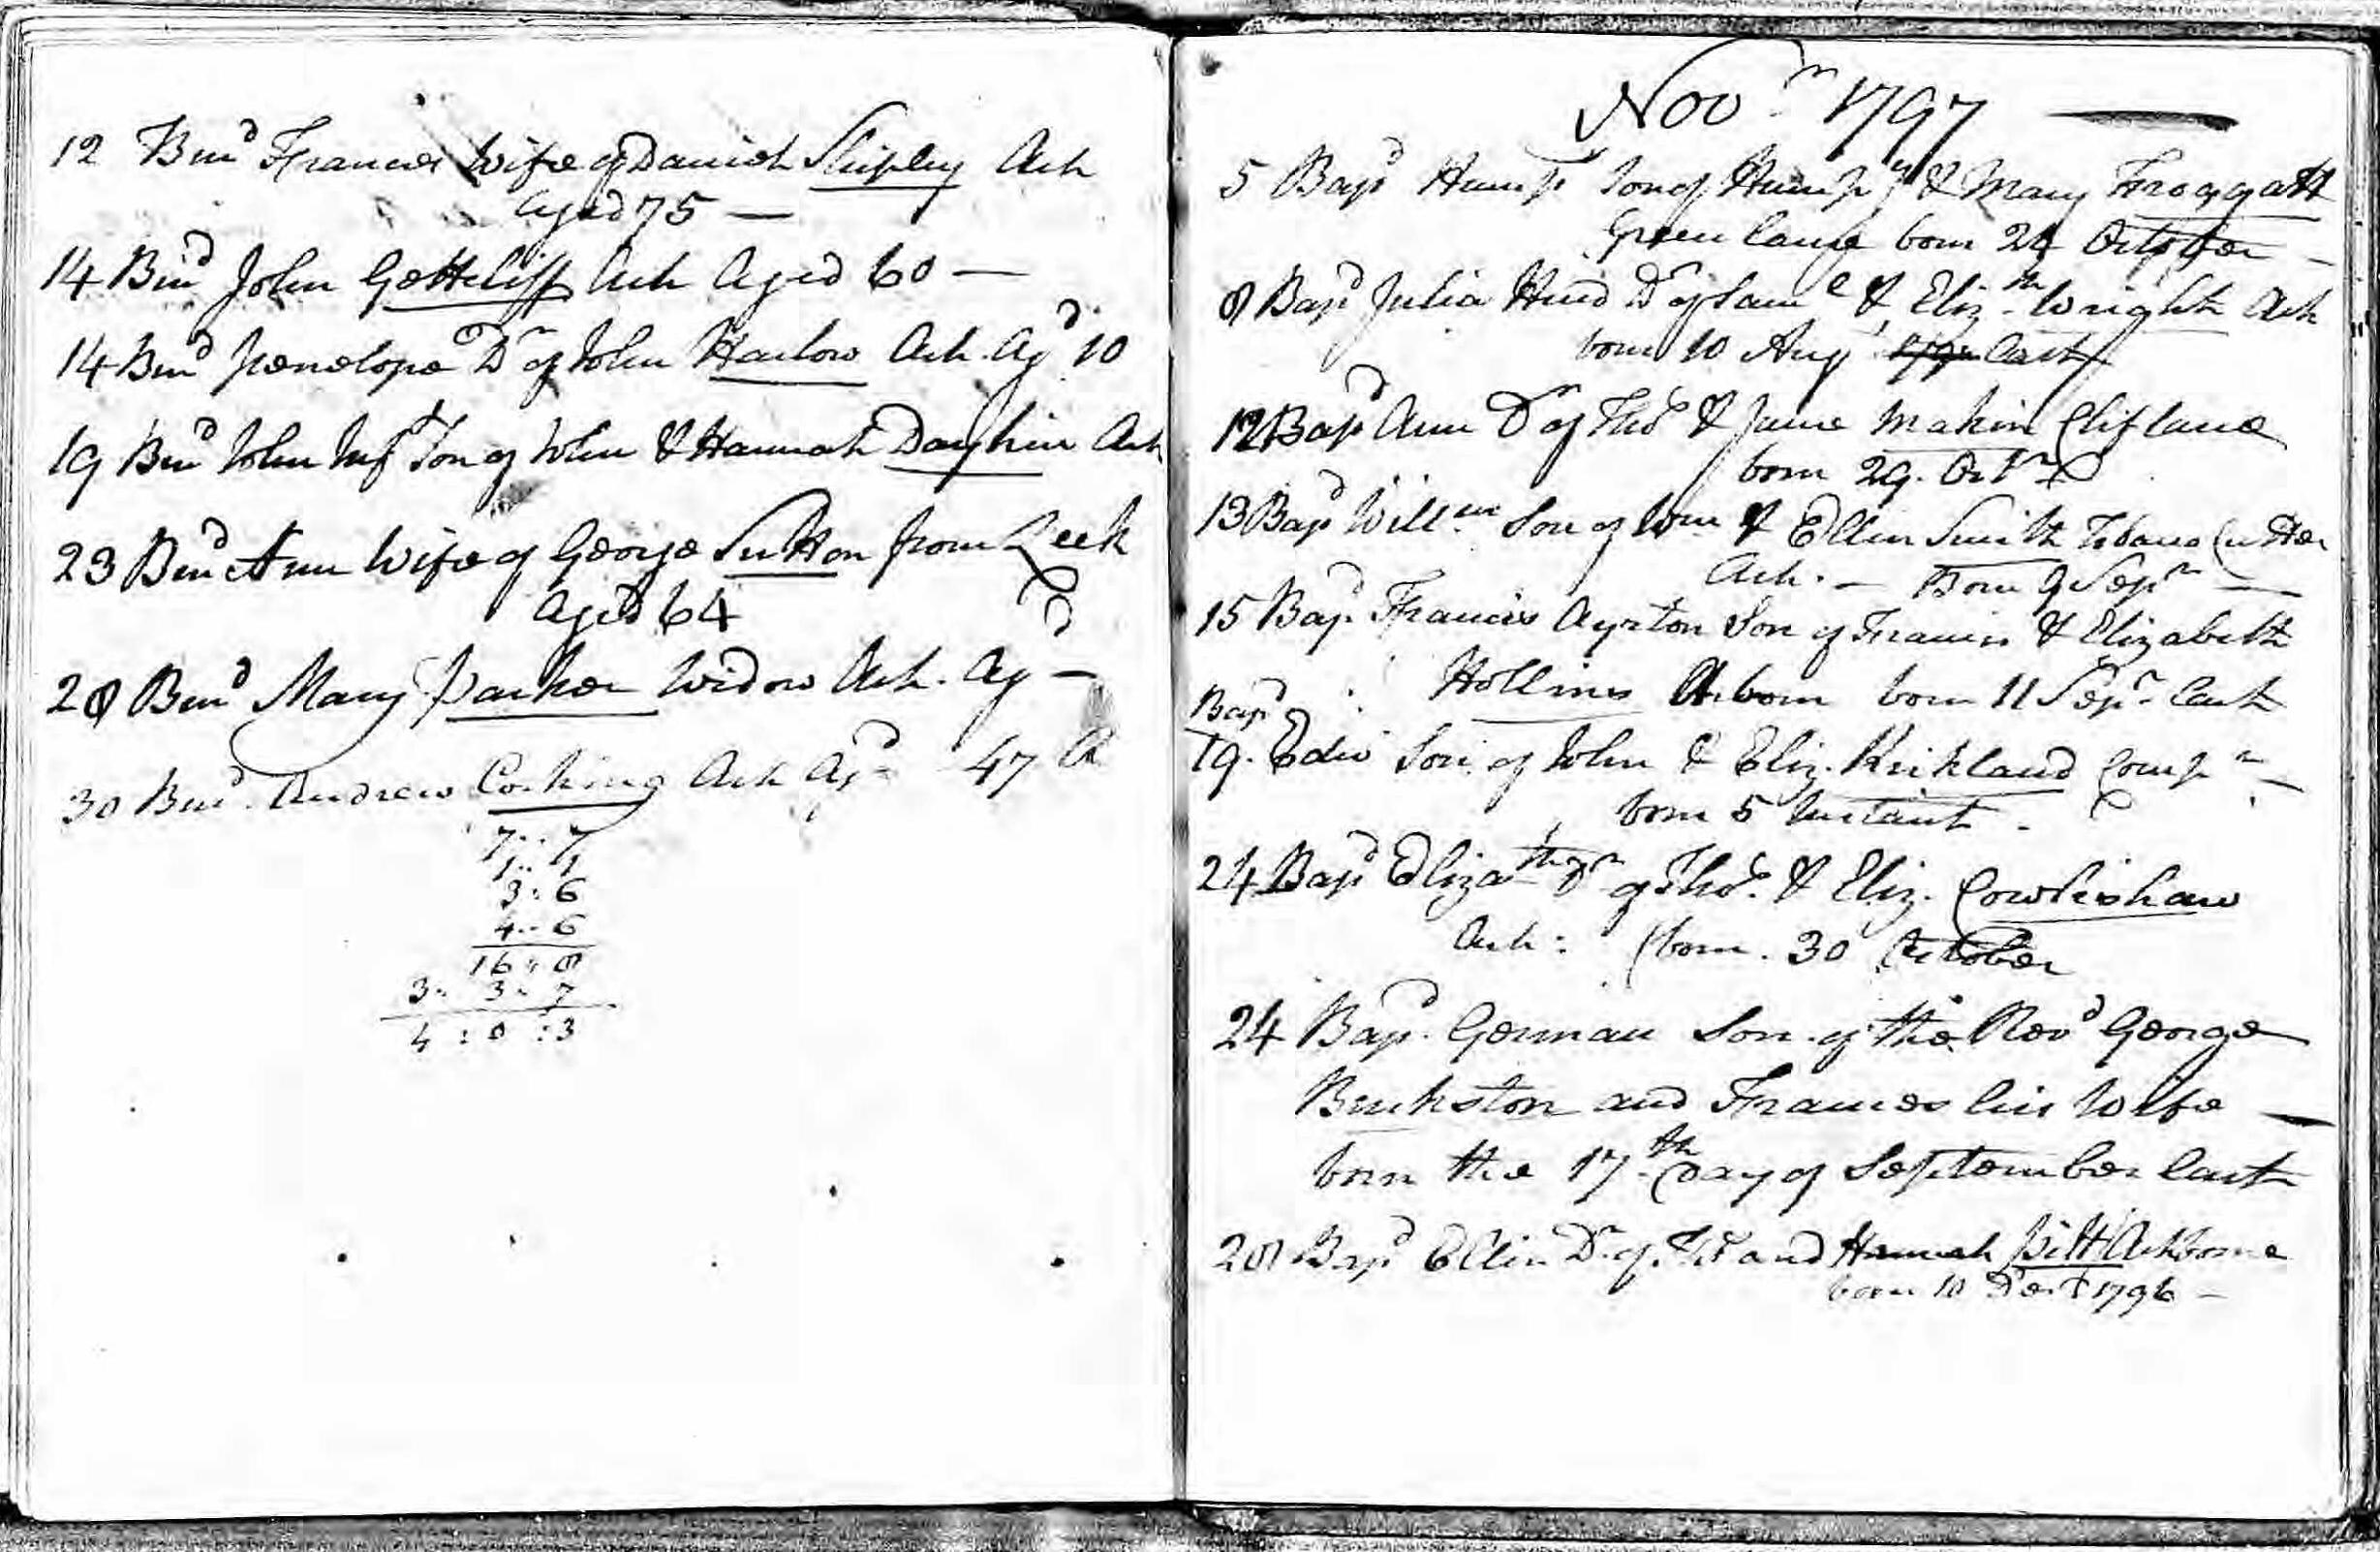 12 Burd Frances Wife of Daniel Shipley Ash
Aged 75 —
14 Burd John Gotteliff Ash Aged 60 —
14 Burd Penelope Dr of John Harlow Ash. Agd 10
19 Burd John Inft Son of John & Hannah Daykin Ash
23 Burd Ann Wife of George Sutton from Leek
Aged 64
28 Burd Mary Parker Widow Ash. Agd —
30 Burd. Andrew Cocking Ash Agd 47
7 .. 7
1 .. 1
3 : 6
4 .. 6
16 .. 8
3 .. 3 .. 7
4 : 0 : 3
Novr 1797 —
5 Bapd Humpy Son of Humpy & Mary Froggatt
Green lane born 24 October —
8 Bapd Julia Dr of Saml & Elizth Wright Ash
born 10 Augt last
12 Bapd Ann Dr of Thos & Jane Makin Clif lane
born 29. Octr
13 Bapd Willm Son of Wm & Ellen Smith Tobaco Cutter
Ash. — Born 9 Sepr —
15 Bapd Francis Ayrton Son of Francis & Elizabeth
Hollins Ashborn born 11 Sepr last
Bapd
19. Edw Son of John & Eliz. Kirkland Compn —
born 5 Instant .
24 Bapd Elizath Dr of Thos. & Eliz. Cowlishaw
Ash : born . 30 October
24 Bapd. German Son of the Revd George
Buckston and Frances his Wife —
born the 17th Day of September last
28 Bapd Ellin Dr of Thos and Hannah Pitt Ashborne
born 10 Decr 1796 —